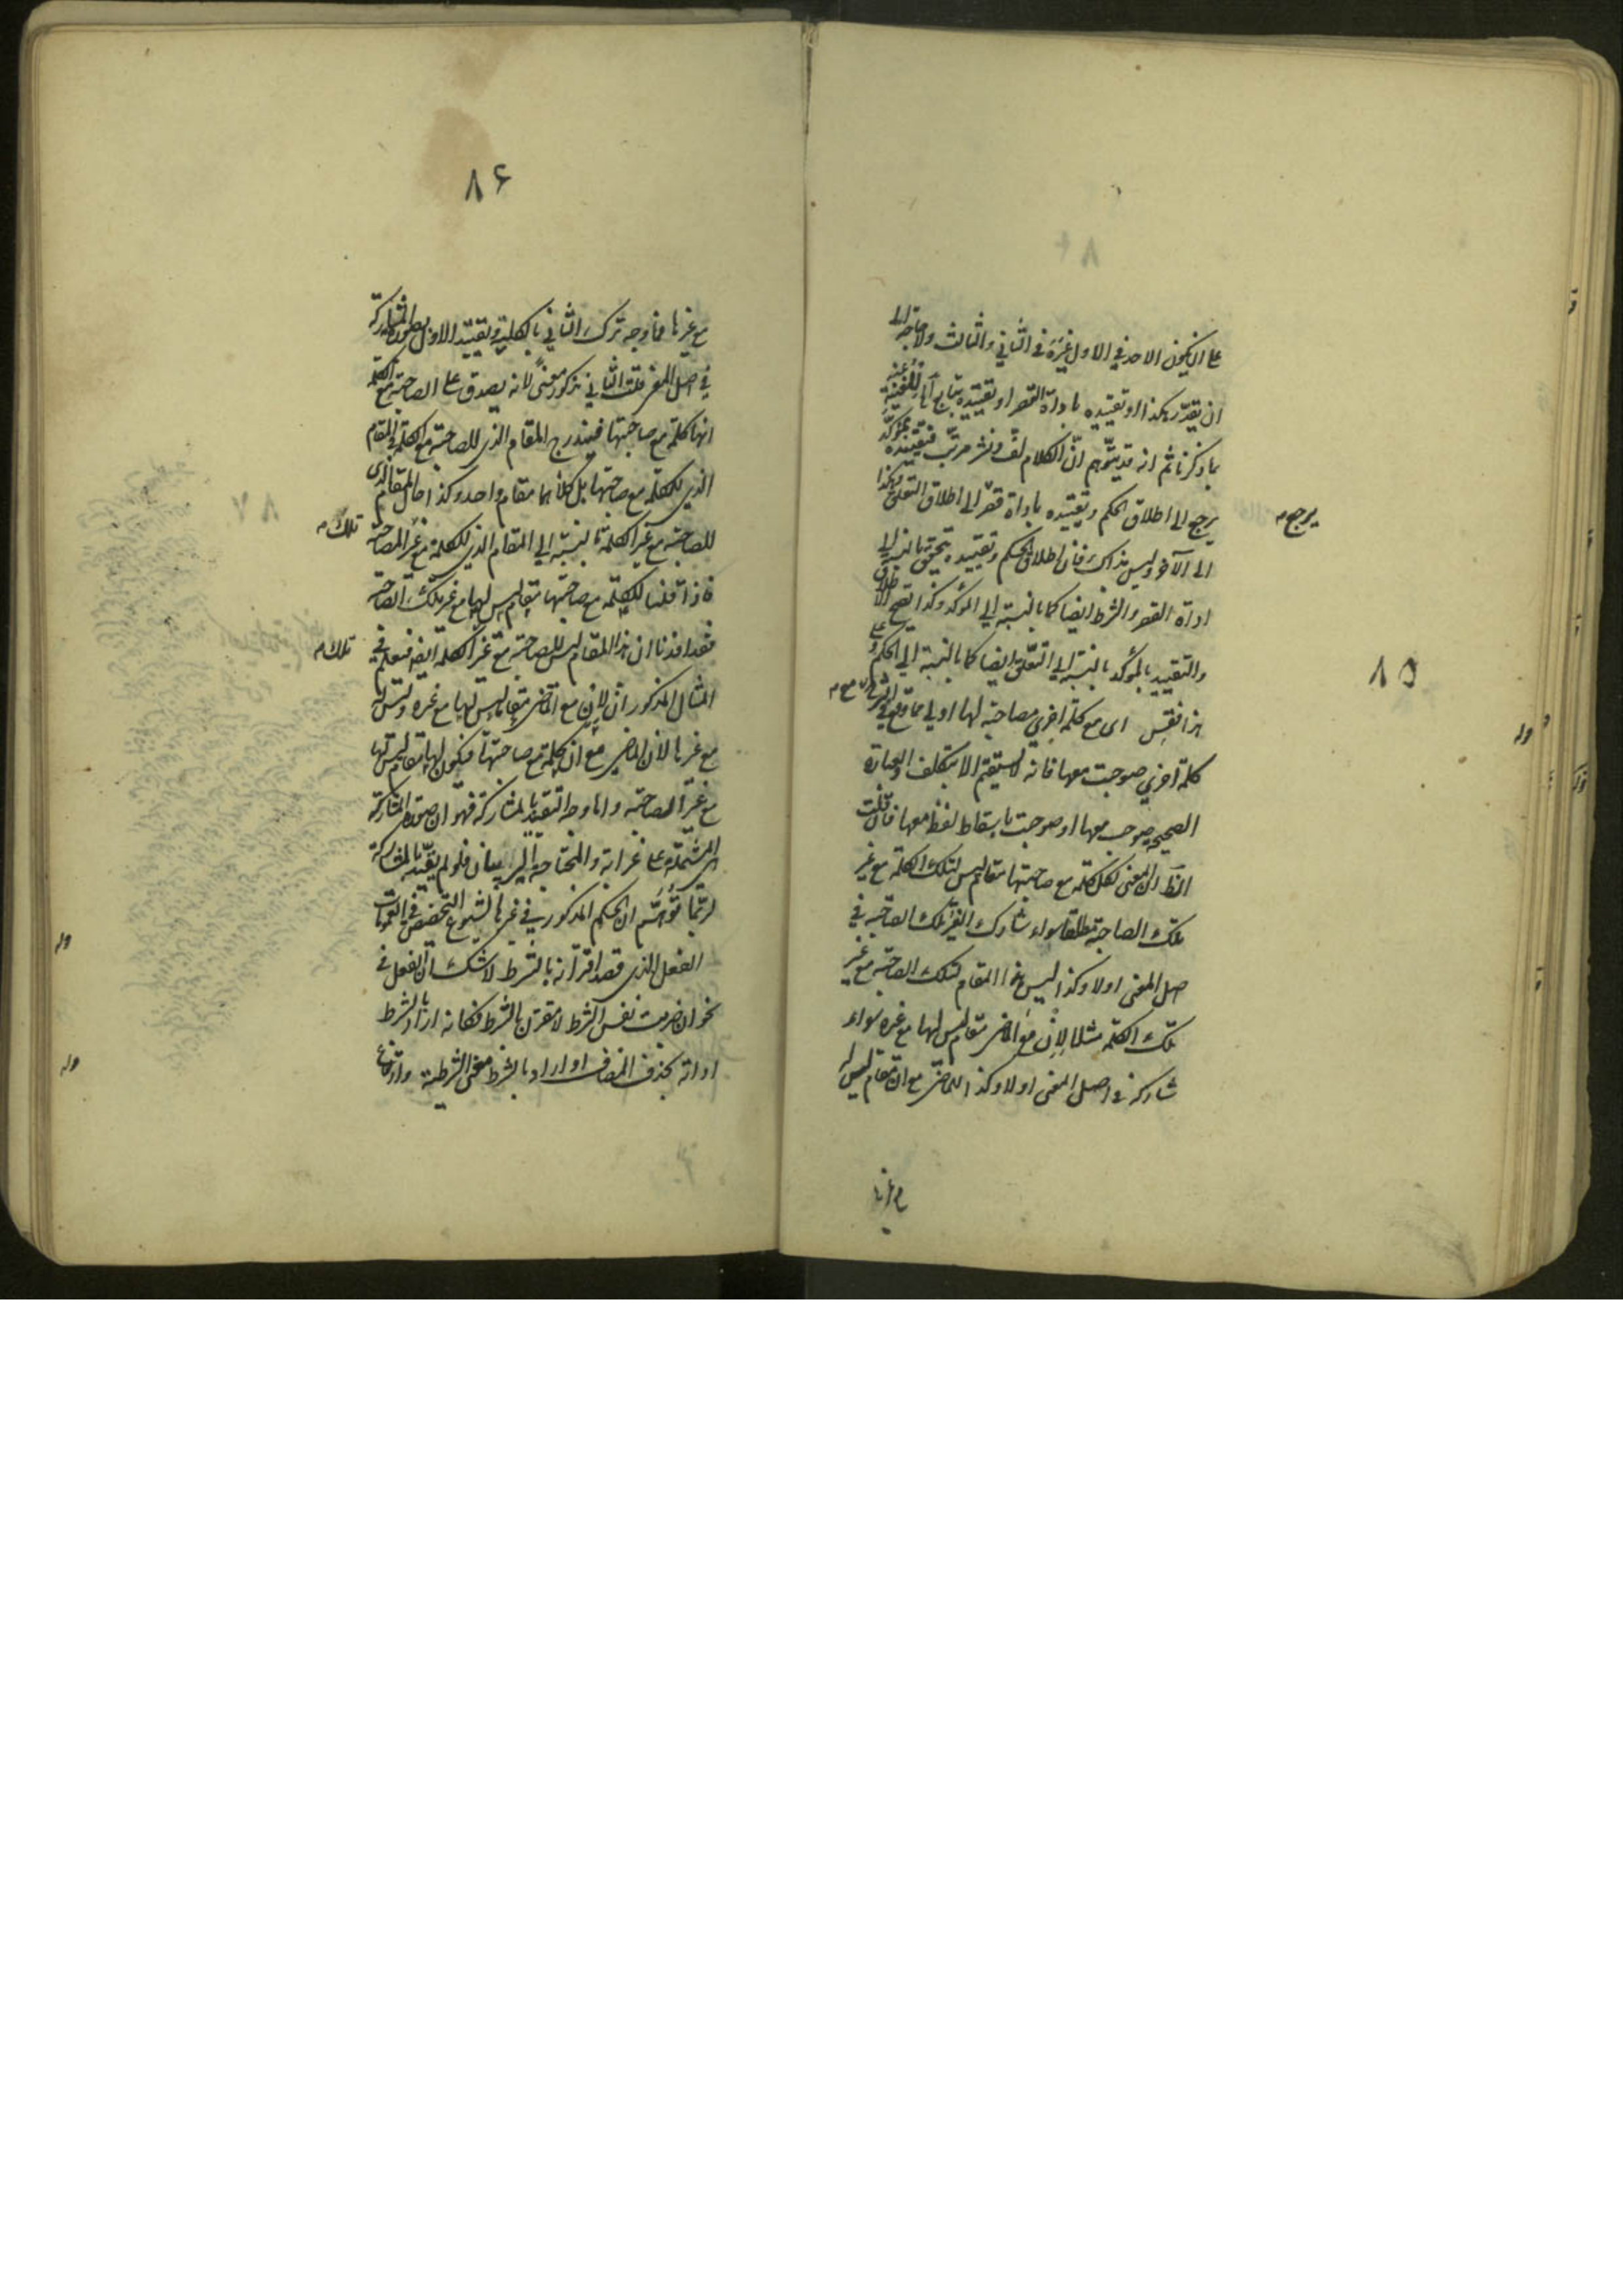 على ان يكون الاحد في الاول غيره في الثاني والثالث ولا حاجة الى
ان يقدر هكذا او تقييده باداة القصر او تقييده بتابع
بما ذكرنا ثم انه قد يتوهم ان الكلام لف ونشر مرتب فتقييده بمؤكد
يرجع الى اطلاق الحكم وتقييده باداة قصر الى اطلاق التعلق وهكذا
يرجع
الى الآخر وليس بذاك فان اطلاق الحكم وتقييده يتحقق بالنسبة الى
اداة القصر والشرط ايضا كما بالنسبة الى المؤكد وكذا يصح الاطلاق
والتقييد بالمؤكد بالنسبة الى التعلق ايضا كما بالنسبة الى الحكم وعلى
٨٥
هذا فقس اى مع كلمة اخرى مصاحبة لها اولى مما وقع في الشرح مع
كلمة اخرى صوحبت معها فانه لا يستقيم الا بتكلف والعبارة
الصحيحة صوحب معها او صوحبت باسقاط لفظ معها فان قلت
الظ ان المعنى لكل كلمة مع صاحبتها مقام ليس لتلك الكلمة مع غير
تلك الصاحبة مطلقا سواء شارك الغير تلك الصاحبة في
اصل المعنى اولا وكذا ليس هذا المقام لتلك الصاحبة مع غير
تلك الكلمة مثلا لان مع الماضى مقام ليس لها مع غيره سواء
شاركه في اصل المعنى اولا وكذا للماضى مع ان مقام ليس له
مع غيرها
٨۶
مع غيرها فما وجه ترك الثاني بالكلية وتقييد الاول بصورة المشاركة
في اصل المعنى قلت الثاني مذكور معنى لانه يصدق على الصاحبة مع الكلمة
انها كلمة مع صاحبتها فيندرج المقام الذى للصاحبة مع الكلمة في المقام
الذى للكلمة مع صاحبتها بل كلاهما مقام واحد وكذا حال المقام الذى
للصاحبة مع غير الكلمة بالنسبة الى المقام الذى للكلمة مع غير الصاحبة
تلك
فاذا قلنا للكلمة مع صاحبتها مقام ليس لها مع غير تلك الصاحبة
فقد افدنا ان هذا المقام ليس للصاحبة مع غير الكلمة ايضا فنعلم في
تلك
المثال المذكور ان لان مع الماضى مقام ليس لها مع غيره وليس له
مع غيرها لان الماضى مع ان كلمة مع صاحبتها فيكون لها مقام ليس لها
مع غير الصاحبة واما وجه التقييد بالمشاركة فهو ان صورة المشاركة
هى المشتملة على غرابة والمحتاجة الى بيان فلو لم يقيد بالمشاركة
لربما توهم ان الحكم المذكور في غيرها لشيوع التخصيص في العمومات
الفعل الذى قصد اقترانه بالشرط لا شك ان الفعل في
نحو ان ضربت نفس الشرط لا مقترن بالشرط فكانه اراد بالشرط
اداته بحذف المضاف او اراد بالشرط معنى الشرطية